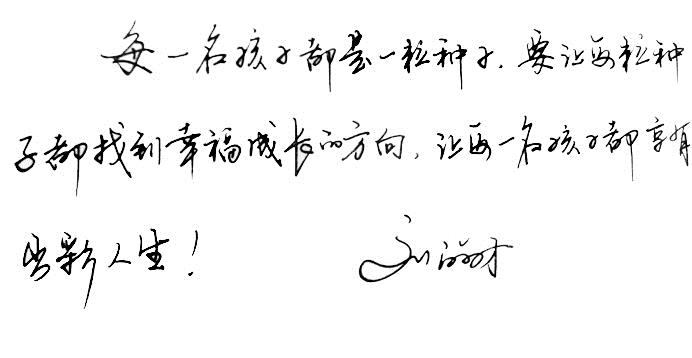 每一名孩子都是一粒种子,要让每粒种
子都找到幸福成长的方向,让每一名孩子都享有
出彩人生!